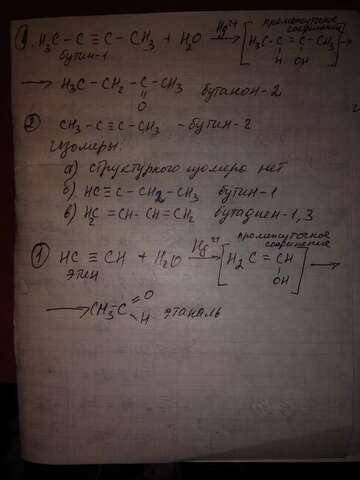 1. H₃C - C ≡ C - CH₃ + H₂O Hg²⁺ → [ промежуточное соединение H₃C - C = C - CH₃ →
H OH
бутин-1
→ H₃C - CH₂ - C - CH₃ бутанон-2
॥
O
② CH₃ - C ≡ C - CH₃ - бутин-2
Изомеры:
а) структурного изомера нет
б) HC ≡ C - CH₂ - CH₃ бутин-1
в) H₂C = CH - CH = CH₂ бутадиен-1,3
① HC ≡ CH + H₂O Hg²⁺ → [ промежуточное соединение H₂C = CH ] →
OH
этин
→ CH₃ - C = O
H этаналь